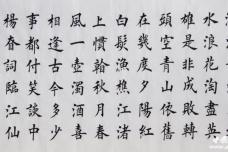 水浪花淘盡英
雄是非成敗轉
頭空青山依舊
在幾度夕陽紅
白髮漁樵江渚
上慣看秋月春
風一壺濁酒喜
相逢古今多少
事都付笑談中
楊眘詞臨江仙